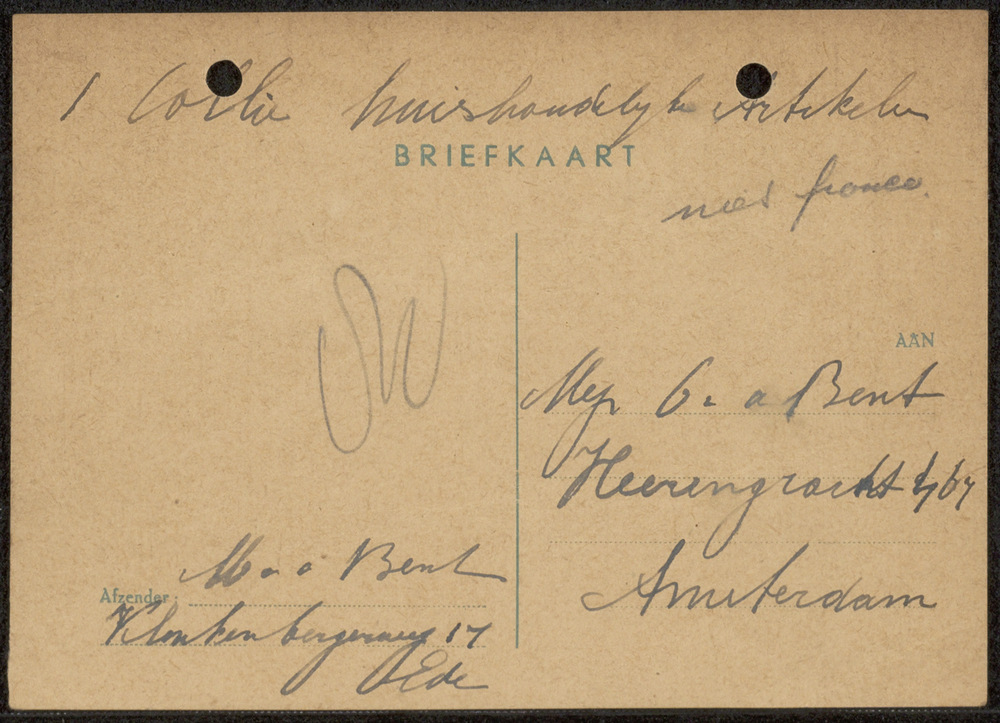 1 Collie huishoudelyke Artikelen
BRIEFKAART
niet franco.
AAN
Mej G. a Bent
Heerengracht
Amsterdam
M. a Bent
Afzender:
Klinkenbergerweg 17
Ede